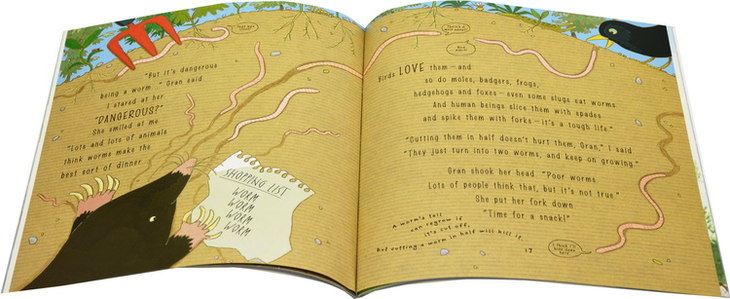 That was close!
"But it's dangerous
being a worm" Gran said
I stared at her
"DANGEROUS?"
She smiled at me
"Lots and lots of animals
think worms make the
best sort of dinner
SHOPPING LIST
WORM
WORM
WORM
WORM
Birds LOVE them—and
so do moles, badgers, frogs,
hedgehogs and foxes—even some slugs eat worms
And human beings slice them with spades
and spike them with forks—it's a tough life"
"Cutting them in half doesn't hurt them, Gran," I said
"They just turn into two worms, and keep on growing."
Gran shook her head "Poor worms
Lots of people think that, but it's not true."
She put her fork down
"Time for a snack!"
A worm's tail
can regrow if
it's cut off,
but cutting a worm in half will kill it.
17
I think I'll
hide down
here